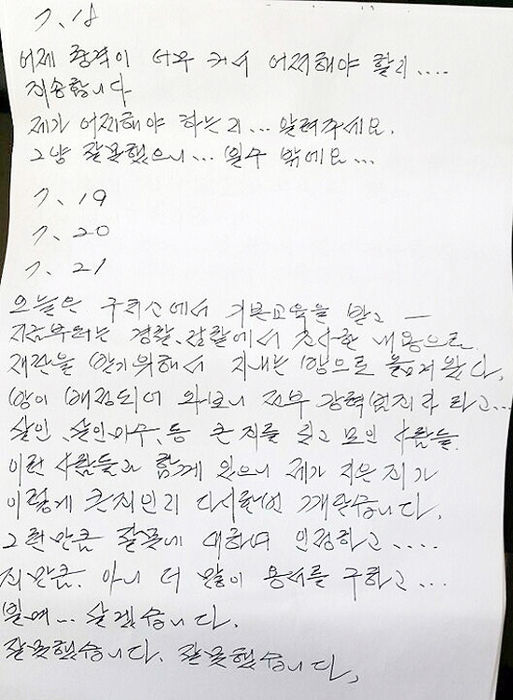 7. 18
어제 충격이 너무 커서 어찌해야 할지....
죄송합니다
제가 어찌해야 하는지... 알려주세요.
그냥 잘못했으니... 밖에요...
7. 19
7. 20
7. 21
오늘은 구치소에서 기본교육을 받고 —
지금부터는 경찰, 검찰에서 조사한 내용으로
재판을 받기위해서 지내는 방으로 옮겨왔다.
방이 배정되어 와보니 전부 강력범죄자 라고...
살인, 살인미수, 등 큰 죄를 짓고 모인 사람들.
이런 사람들과 함께 있으니 제가 지은 죄가
이렇게 큰죄인지 다시한번 깨달았습니다.
그런만큼 잘못에 대하여 인정하고....
죄만큼. 아니 더 많이 용서를 구하고...
빌며... 살겠습니다.
잘못했습니다. 잘못했습니다.